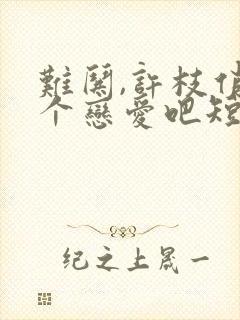 難闋,許枝俏
个戀愛吧短
纪之上晟一